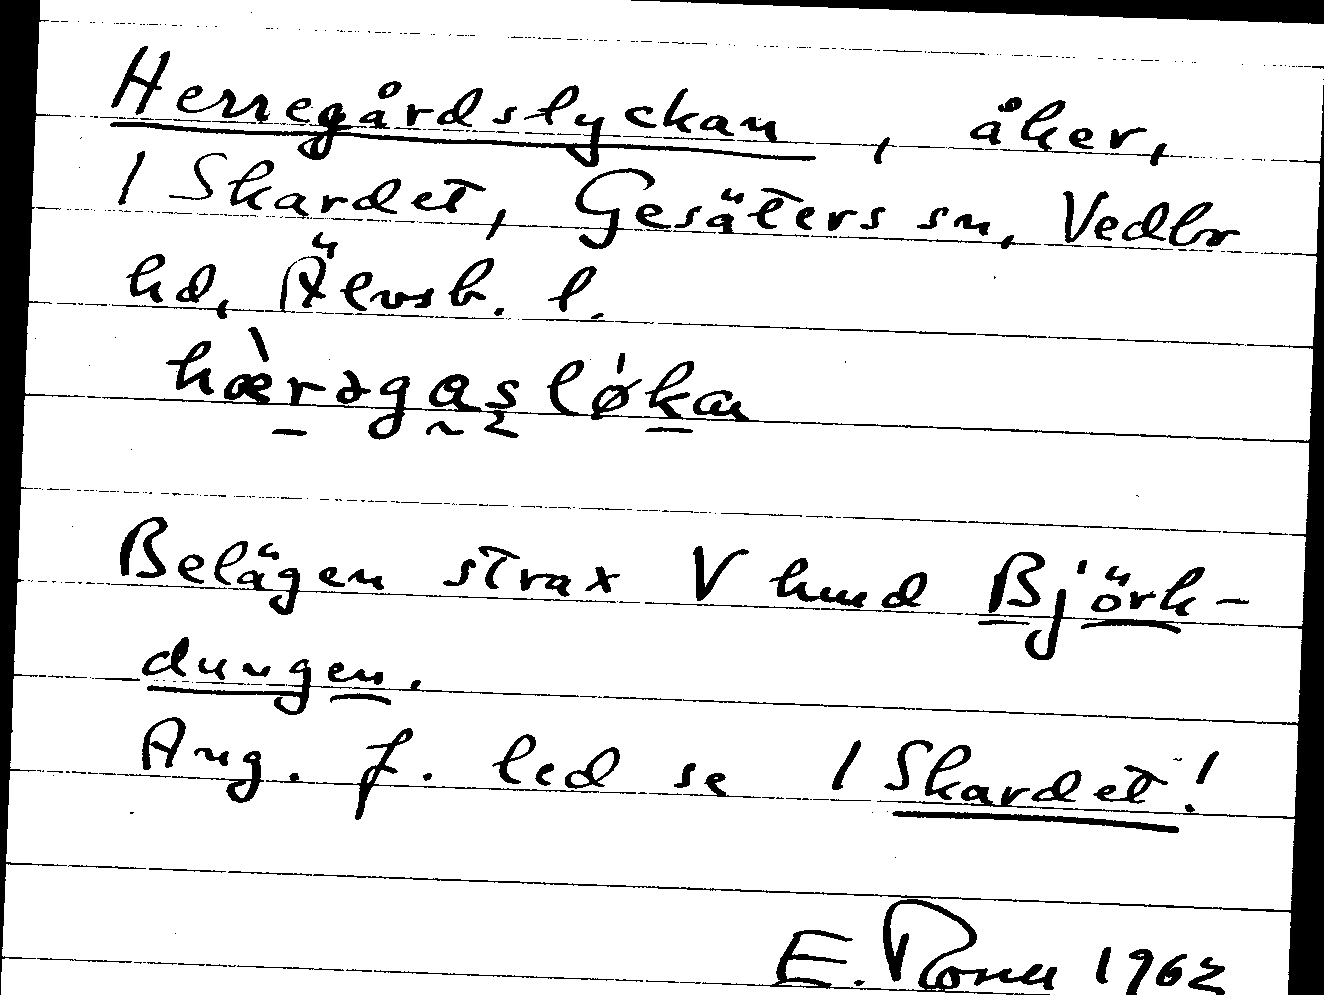 Herregårdslyckan, åker,
1 Skardet, Gesäters sn, Vedbr
hd, Älvsb. l.
hæ̀rəgasløkan
Belägen strax V hmd Björk-
dungen.
Ang. f. led se 1 Skardet!
E. 1962